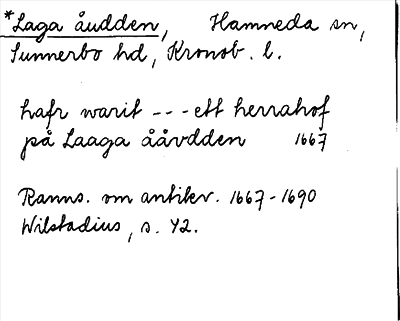 *Laga åudden, Hamneda sn,
Sunnerbo hd, Kronob. l.
hafr warit --- ett herrahof
på Laaga ååvdden 1667
Ranns. om antikv. 1667-1690
Wilstadius, s. 42.